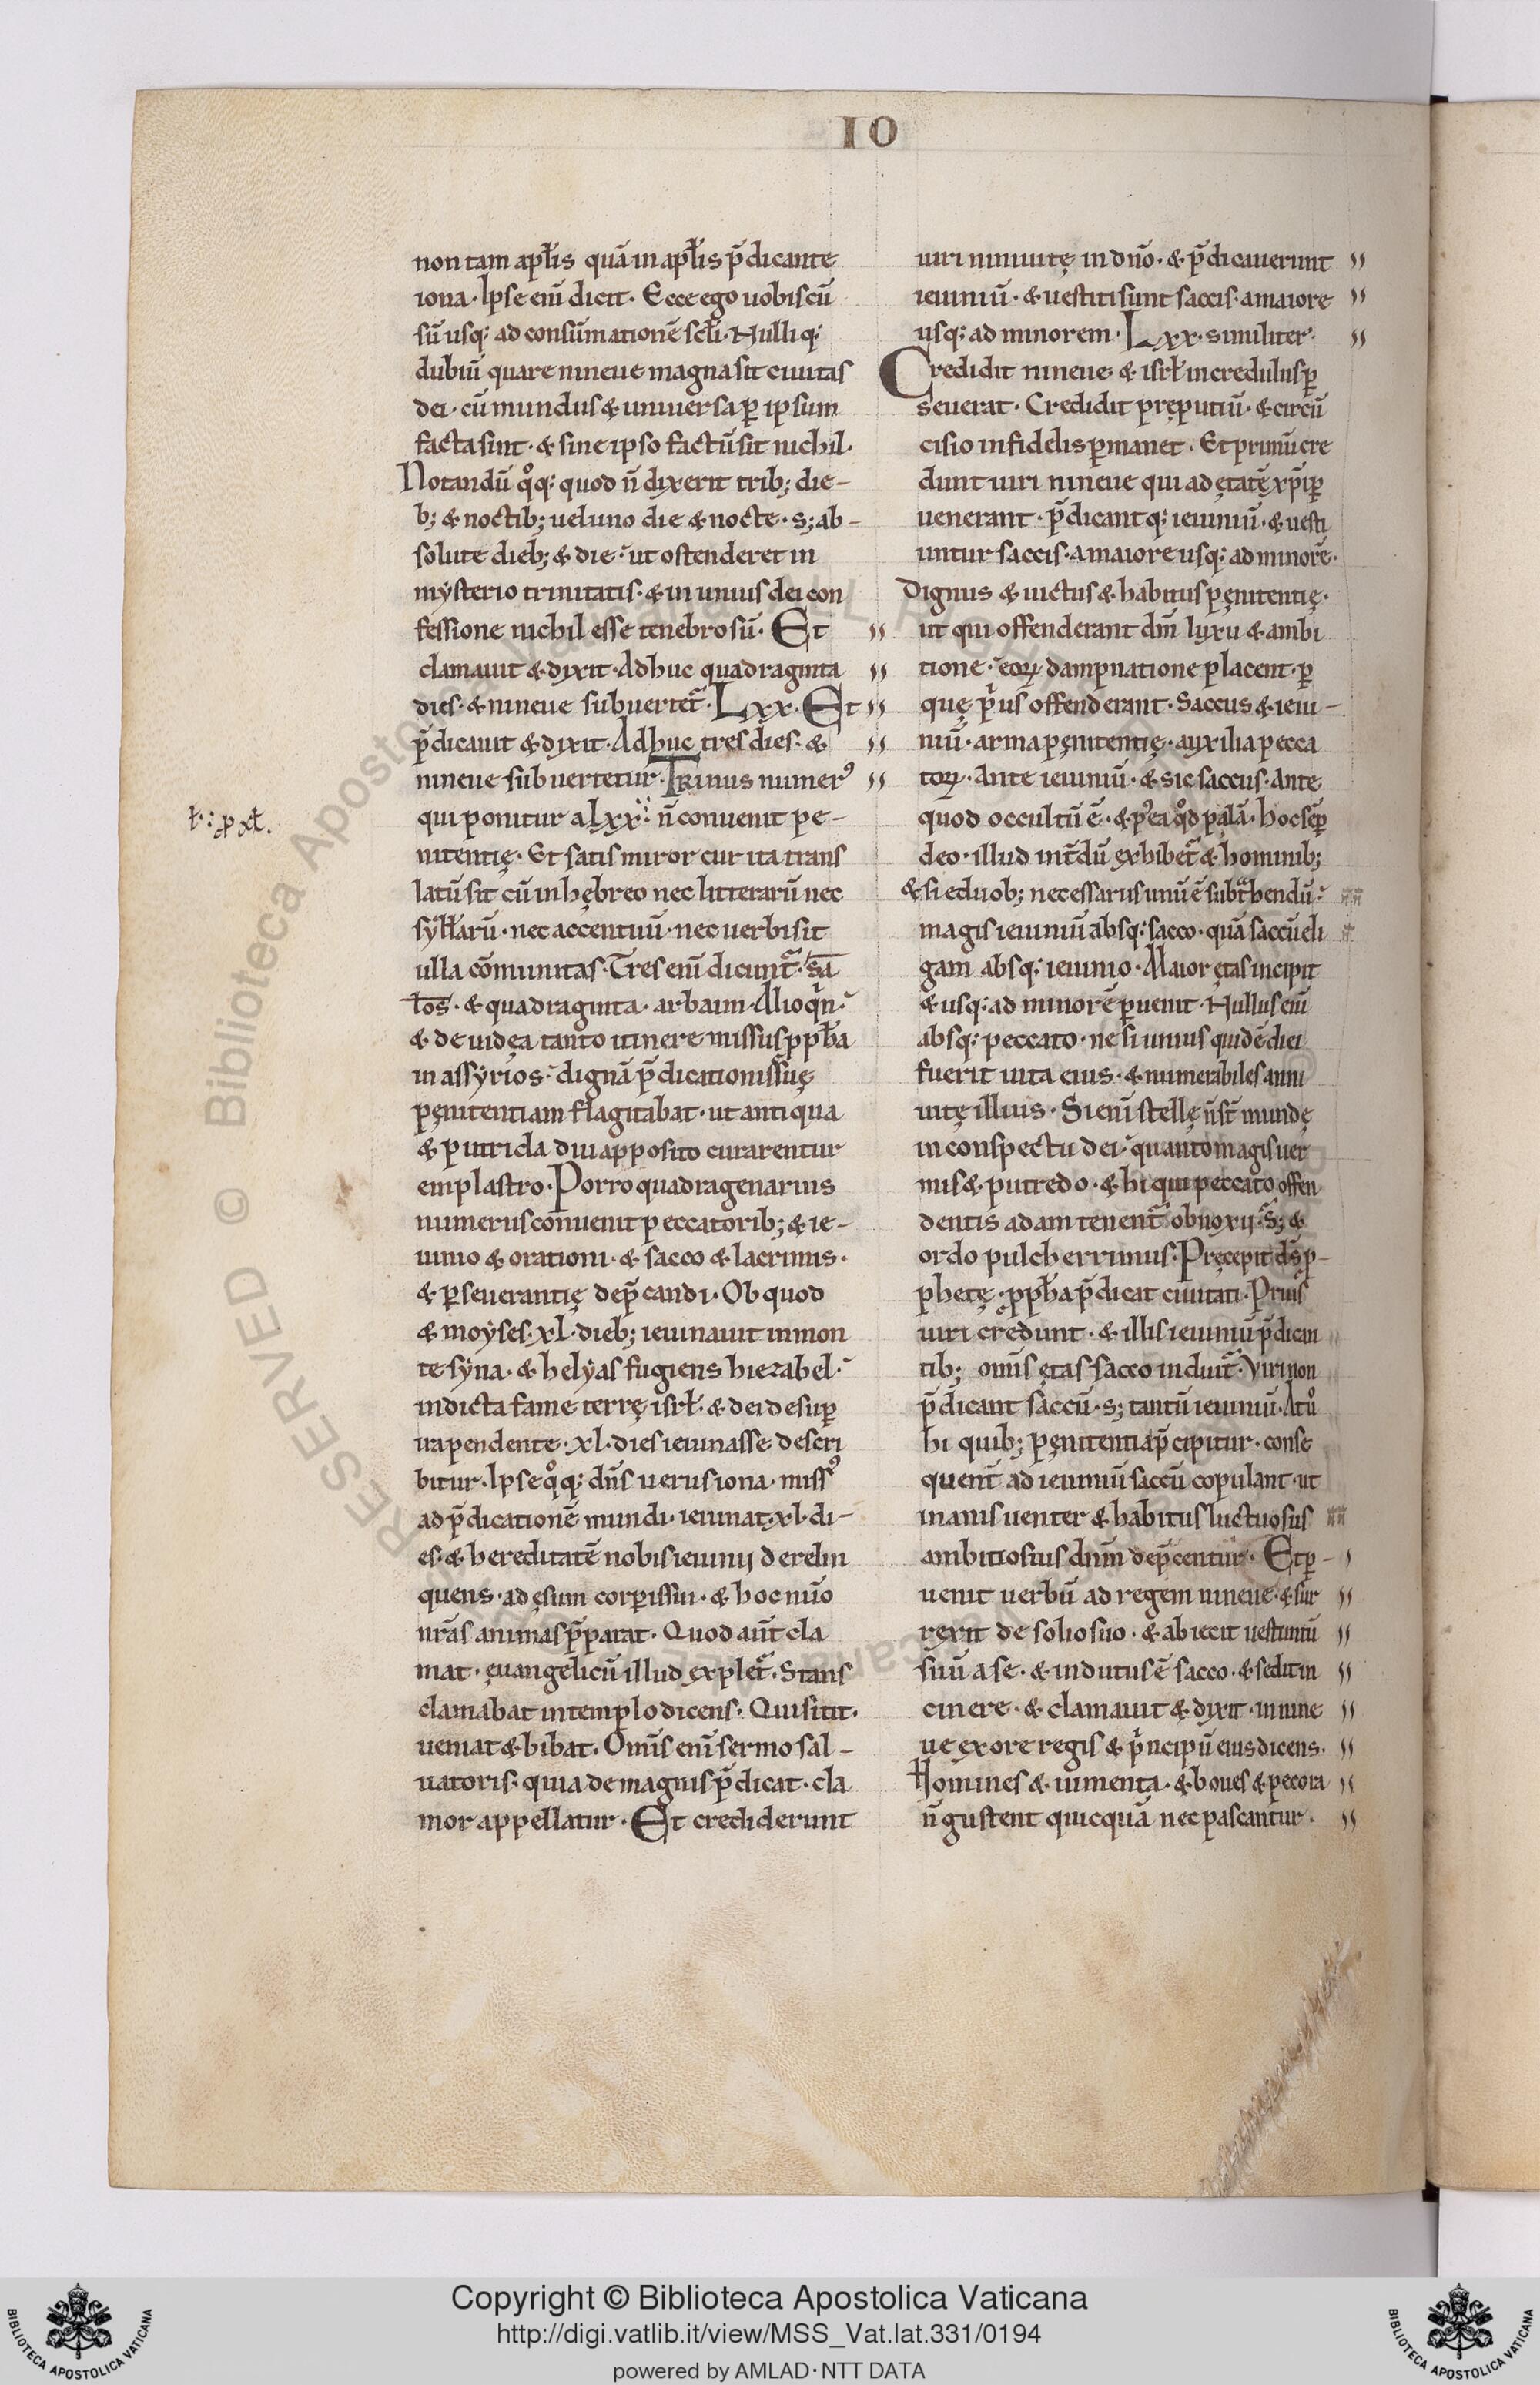 IO
non tam apłis quā in apłis p̄dicante
iona · Ipse eni̅ dicit · Ecce ego uobiscū
sū usq; ad consūmationē scłi · Nulliq;
dubiū quare nineue magna sit ciuitas
dei · cū mundus & uniuersa ꝑ ipsum
facta sint · & sine ipso factū sit nichil ·
Notandū qͦq; quod n̄ dixerit trib; die-
b; & noctib; uel uno die & nocte · s; ab-
solute dieb; & die · ut ostenderet in
mẏsterio trinitatis · & in unius dei con
fessione nichil esse tenebrosū · Et
clamauit & dixit · Adhuc quadraginta
dies · & nineue subuertet᷑ · Lxx · Et
p̄dicauit & dixit · Adhuc tres dies · &
nineue subuertetur · Trinus numerꝰ
ł · : ꝓ xt̄.
qui ponitur a lxx : n̄ conuenit pe-
nitentię · Et satis miror cur ita trans
latū sit cū in hębreo nec litterarū nec
syłłarū · nec accentuū · nec uerbi sit
ulla cōmunitas · Tres eni̅ dicunt᷑ · sa
los · & quadraginta · arbaim · Alioqͥn ·
& de uidęa tanto itinere missus ꝓpħa
in assẏrios · dignā p̄dicationis suę
pęnitentiam flagitabat · ut antiqua
& putrida diu apposito curarentur
emplastro · Porro quadragenarius
numerus conuenit peccatorib; & ie-
iunio & orationi · & sacco & lacrimis ·
& ꝑseuerantię dep̄candi · Ob quod
& moẏses · xl · dieb; ieiunauit in mon
te sẏna · & helẏas fugiens hiezabel ·
indicta fame terrę isrł · & dei desuꝑ
ira pendente · xl · dies ieiunasse descri
bitur · Ipse qͦq; dn̄s uerus iona · missꝰ
ad p̄dicationē mundi · ieiunat · xl · di-
es · & hereditatē nobis ieiunij derelin
quens · ad ęsum corꝑis sui · & hoc nūo
nr̄as animas p̄parat · Quod aūt cla
mat · ęuangelicū illud explet᷑ · Stans
clamabat in templo dicens · Qui sitit ·
ueniat & bibat · Omīs eni̅ sermo sal-
uatoris · quia de magnis p̄dicat · cla
mor appellatur · Et crediderunt
uiri niniuitę in dn̄o · & p̄dicauerunt
ieiuniū · & uestiti sunt saccis · a maiore
usq; ad minorem · Lxx · similiter ·
Credidit nineue & isrł incredulus ꝑ
seuerat · Credidit pręputiū · & circū
cisio infidelis ꝑmanet · Et primū cre
dunt uiri nineue qui ad ętatē xp̄i ꝑ
uenerant · p̄dicantq; ieiuniū · & uesti
untur saccis · a maiore usq; ad minorē ·
Dignus & uictus & habitus pęnitentię ·
ut qui offenderant dm̄ luxu & ambi
tione · eoꝝ dampnatione placent · ꝑ
quę pͥus offenderant · Saccus & ieiu-
niū · arma pęnitentię · auxilia pecca
toꝝ · Ante ieiuniū · & sic saccus · Ante
quod occultū ē · & pꝰea qͦd palā · hoc sēꝑ
deo · illud int̄dū exhibet᷑ & hominib;
& si e duob; necessariis unū ē subtͣhendū ·
magis ieiuniū absq; sacco · quā saccū eli
gam absq; ieiunio · Maior ętas incipit
& usq; ad minorē ꝑuenit · Nullus eni̅
absq; peccato · ne si unius quidē diei
fuerit uita eius · & numerabiles anni
uitę illius · Si eni̅ stellę n̄ st̄ mundę
in conspectu dei · quanto magis uer
mis & putredo · & hi qui peccato offen
dentis adam tenent᷑ obnoxij · s; &
ordo pulcherrimus · Pręcepit ds̄ ꝓ-
phetę · ꝓpħa p̄dicat ciuitati · Prius
uiri credunt · & illis ieiuniū p̄dican
tib; omīs ętas sacco induit᷑ · Viri non
p̄dicant saccū · s; tantū ieiuniū · Atͦ
hi quib; pęnitentia p̄cipitur · conse
quent̄ ad ieiuniū saccū copulant · ut
inanis uenter & habitus luctuosus
ambitiosius dnm̄ dep̄centur · Et ꝑ-
uenit uerbū ad regem nineue · & sur
rexit de solio suo · & abiecit uestimtū
suū a se · & indutus ē sacco · & sedit in
cinere · & clamauit & dixit · in nine
ue ex ore regis & pͥncipū eius dicens ·
Homines & iumenta · & boues & pecora
n̄ gustent quicquā nec pascantur ·
© Biblioteca Apostolica Vaticana
ALL RIGHTS RESERVED
Copyright © Biblioteca Apostolica Vaticana
http://digi.vatlib.it/view/MSS_Vat.lat.331/0194
powered by AMLAD·NTT DATA
BIBLIOTECA APOSTOLICA VATICANA
BIBLIOTECA APOSTOLICA VATICANA